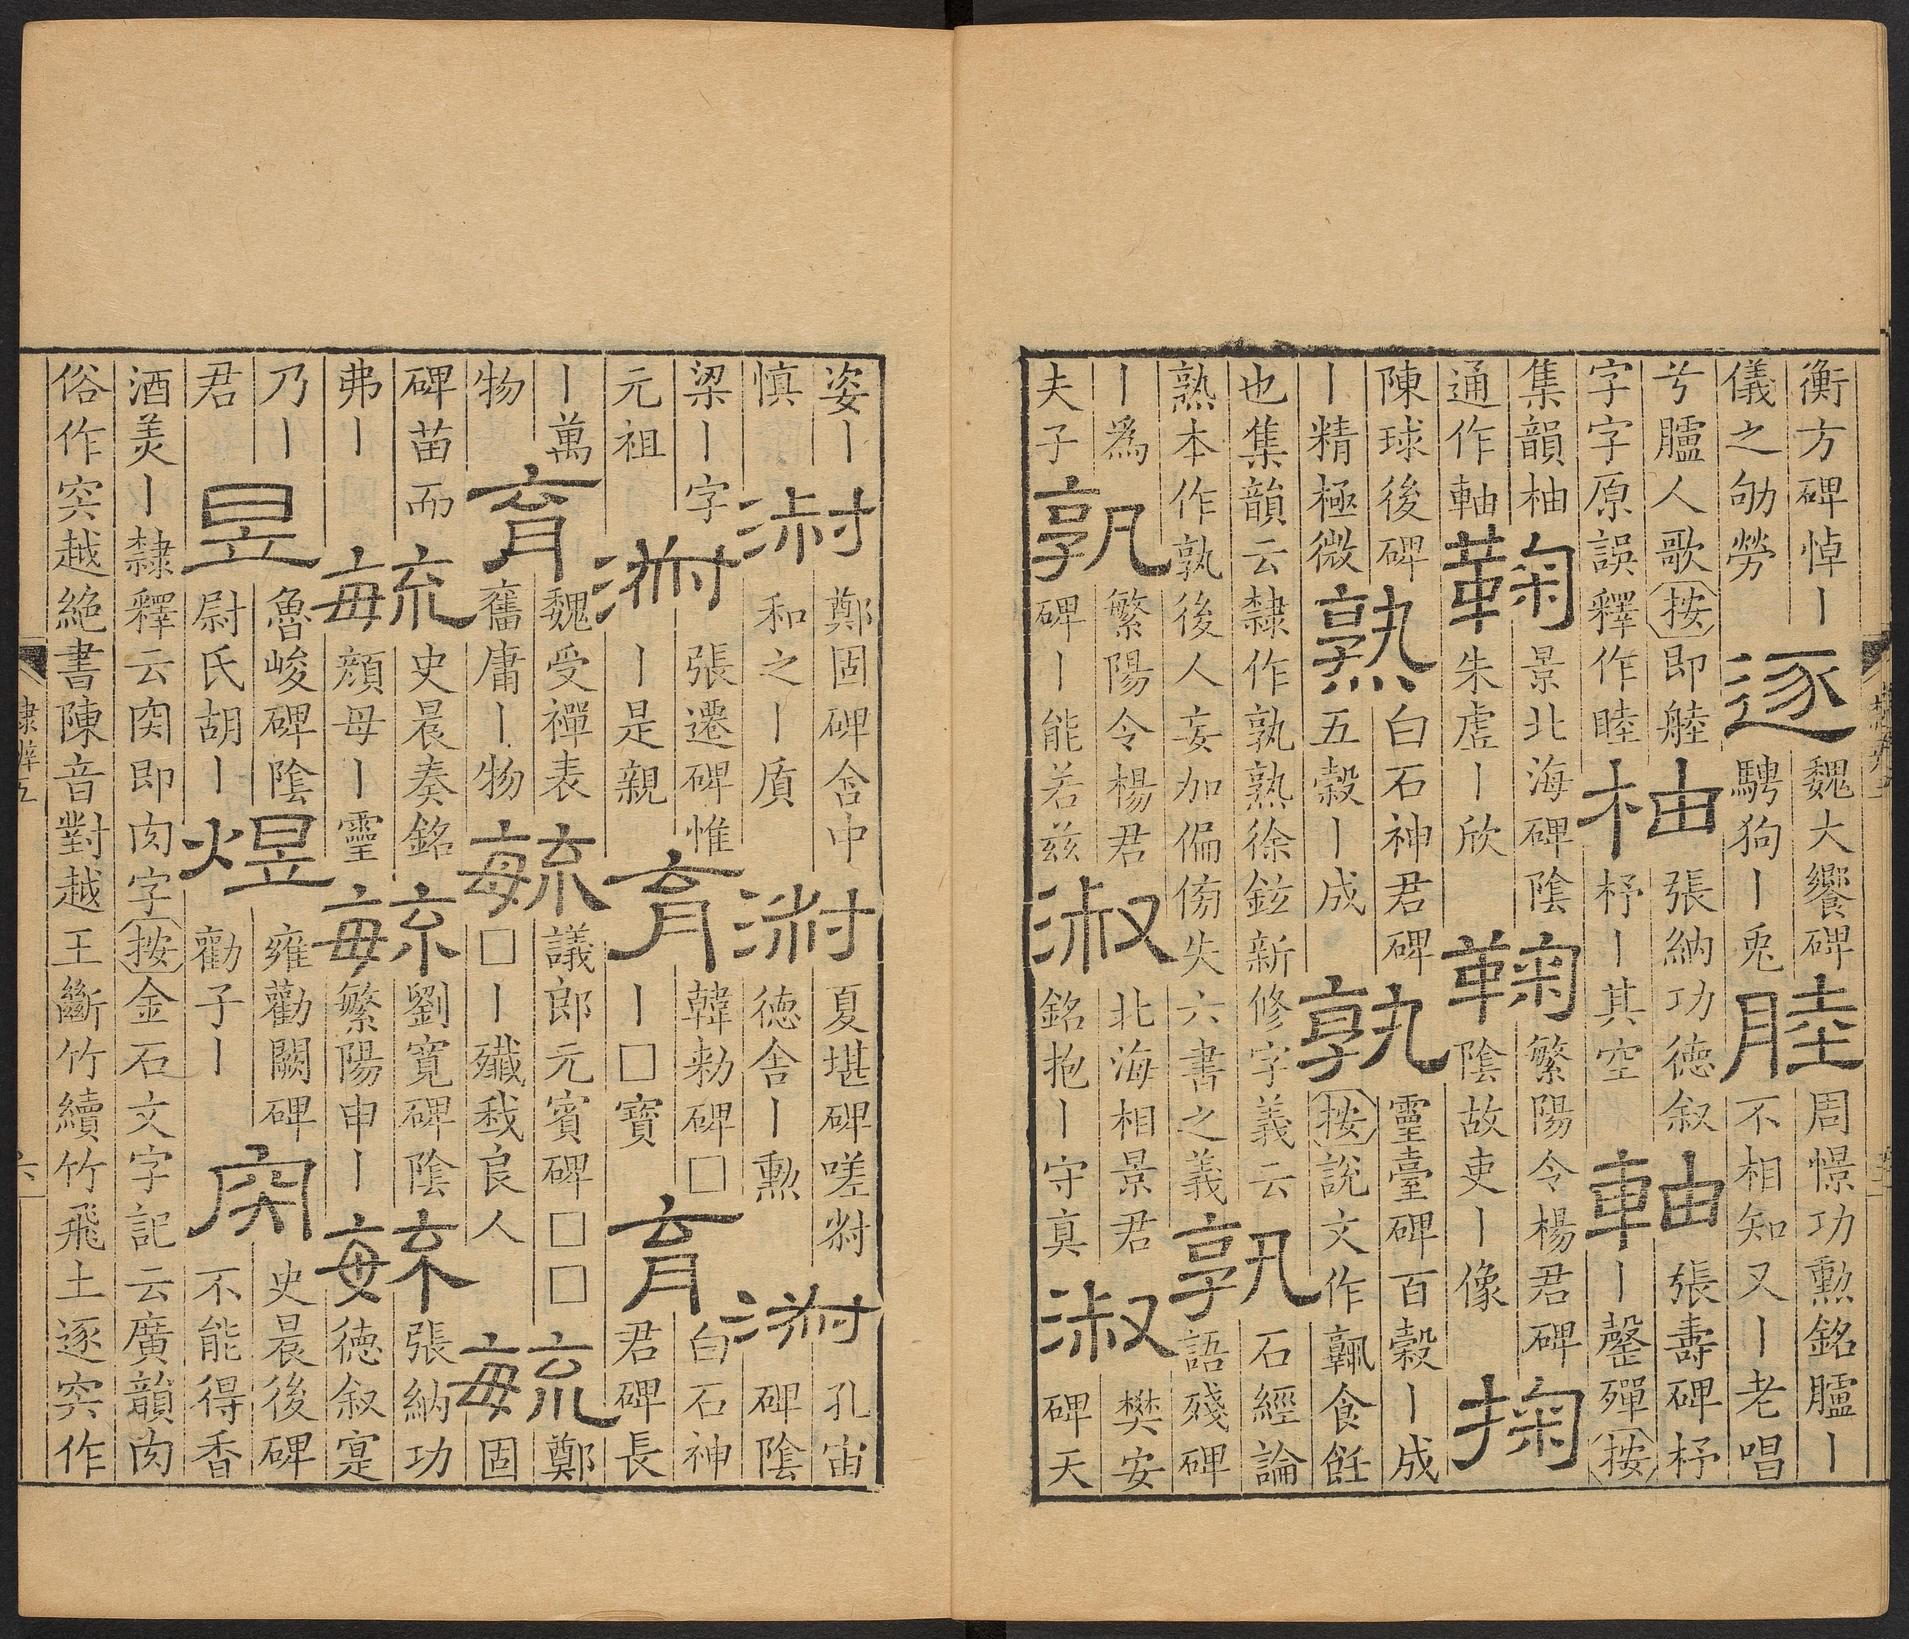 衡方碑悼丨
儀之劬勞
逐
魏大饗碑
騁狗丨兎
睦
周憬功勲銘臚丨
不相知又丨老唱
兮臚人歌按即䑃
字字原誤釋作睦
柚
張納功徳叙
杼丨其空
軸
張壽碑杼
丨罄殫按
集韻柚
通作軸
鞠
景北海碑陰
朱虗丨欣
鞠
繁陽令楊君碑
陰故吏丨像
掬
陳球後碑
丨精極微
熟
白石神君碑
五穀丨成
孰
靈臺碑百穀丨成
按說文作𩱧食飪
也集韻云隸作孰熟徐鉉新修字義云
熟本作孰後人妄加偏傍失六書之義
孰
石經論
語殘碑
丨爲
夫子
孰
繁陽令楊君
碑丨能若兹
淑
北海相景君
銘抱丨守真
淑
樊安
碑天
姿丨
慎
淑
鄭固碑含中
和之丨質
淑
夏堪碑嗟尗
徳含丨勲
淑
孔宙
碑陰
梁丨字
元祖
淑
張遷碑惟
丨是親
育
韓勑碑□
丨□寶
育
白石神
君碑長
丨萬
物
育
魏受禪表
舊庸丨物
毓
議郎元賓碑□□
□丨殲我良人
毓
鄭
固
碑苗而
弗丨
毓
史晨奏銘
顔母丨靈
毓
劉寬碑陰
繁陽申丨
毓
張納功
徳叙寔
乃丨
君
昱
魯峻碑陰
尉氏胡丨
煜
雍勸闕碑
勸子丨
肉
史晨後碑
不能得香
酒美丨隸釋云𡧢即肉字按金石文字記云廣韻肉
俗作宍越絶書陳音對越王斷竹續竹飛土逐宍作
隸辨五
六